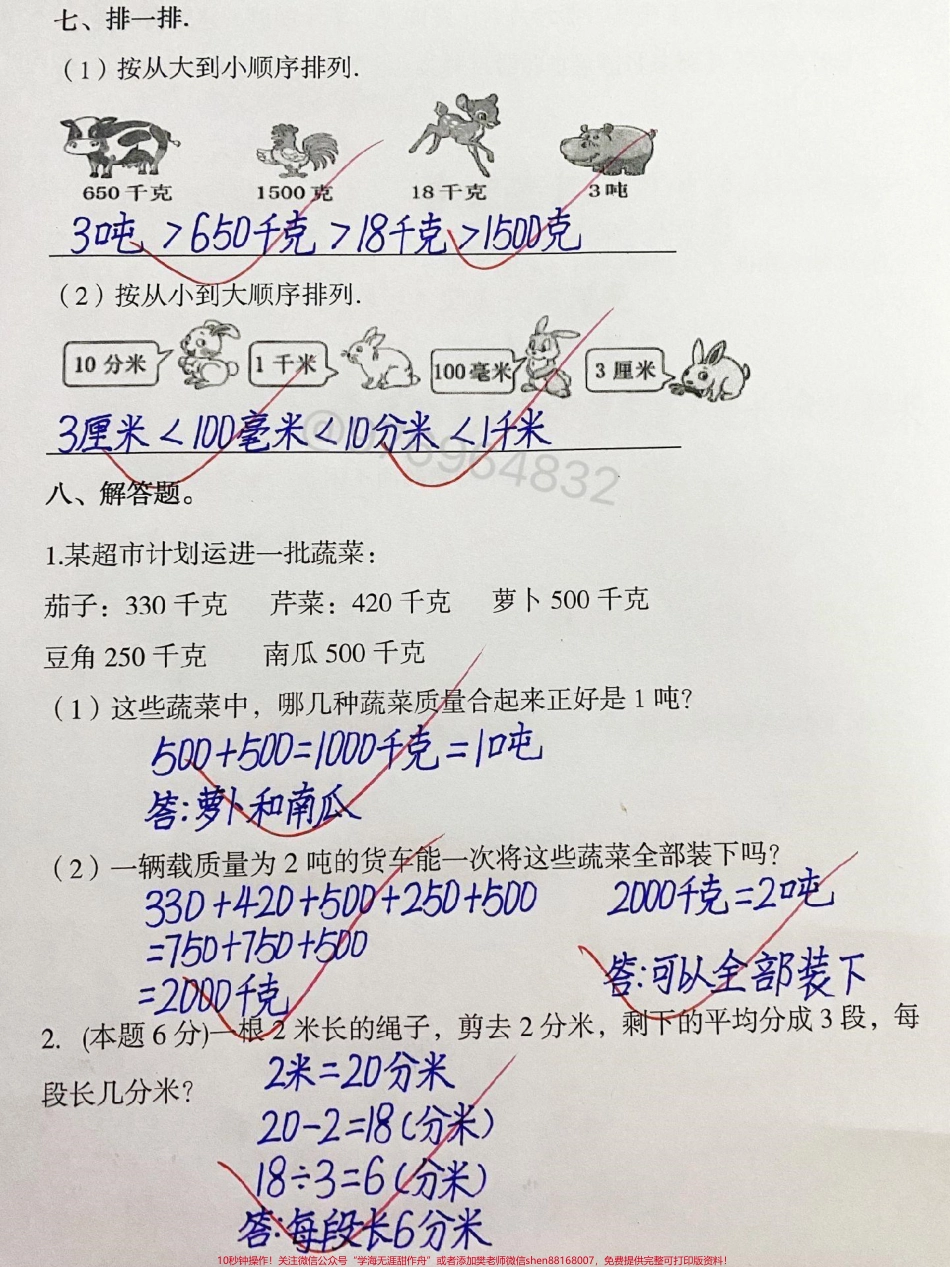 七、排一排.
（1）按从大到小顺序排列.
650千克 1500克 18千克 3吨
3吨 >650千克 >18千克 >1500克
（2）按从小到大顺序排列.
10分米 1千米 100毫米 3厘米
3厘米 < 100毫米 < 10分米 < 1千米
八、解答题。
1.某超市计划运进一批蔬菜：
茄子：330 千克 芹菜：420 千克 萝卜 500 千克
豆角 250 千克 南瓜 500 千克
（1）这些蔬菜中，哪几种蔬菜质量合起来正好是 1 吨？
500+500=1000千克=1吨
答:萝卜和南瓜
（2）一辆载质量为 2 吨的货车能一次将这些蔬菜全部装下吗？
330+420+500+250+500 2000千克=2吨
=750+750+500
=2000千克 答:可以全部装下
2. (本题 6 分)一根 2 米长的绳子，剪去 2 分米，剩下的平均分成 3 段，每
段长几分米？
2米=20分米
20-2=18(分米)
18÷3=6(分米)
答:每段长6分米
10秒钟操作！关注微信公众号“学海无涯甜作舟”或者添加樊老师微信shen88168007，免费提供完整可打印版资料！